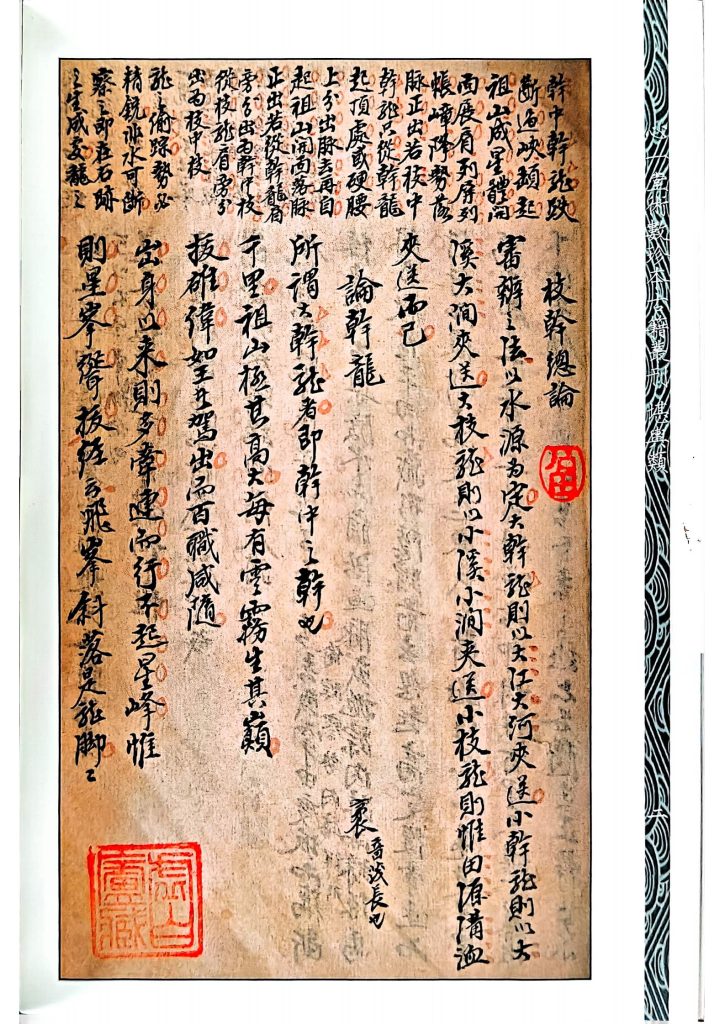 幹中幹龍跌
斷過峽頓起
祖山成星體開
面展肩列屏列
帳嶂降勢落
脉正出若枝中
幹龍只從幹龍
起頂處或硬腰
上分出脉去再自
起祖山開面落脉
正出若從幹龍肩
旁分出為幹中枝
從枝龍肩旁分
出為枝中枝
龍之踪勢
精銳非水可斷
察之即在石跡
之生成龍之
枝幹總論
審辨之法以水源為定大幹龍則以大江大河夾送小幹龍則以大
溪大澗夾送大枝龍則以小溪小澗夾送小枝龍則惟田源溝洫
夾送而已
論幹龍
袤 音茂長也
所謂大幹龍者即幹中之幹也
千里祖山極其高大每有雲霧生其巔
拔雄偉如王者駕出而百職咸隨
出身以來則多牽連而行不起星峰惟
則星峯聳拔經云飛峯斜落是龍脚
虛白廬藏
心一堂術數珍本古籍叢刊 堪輿類